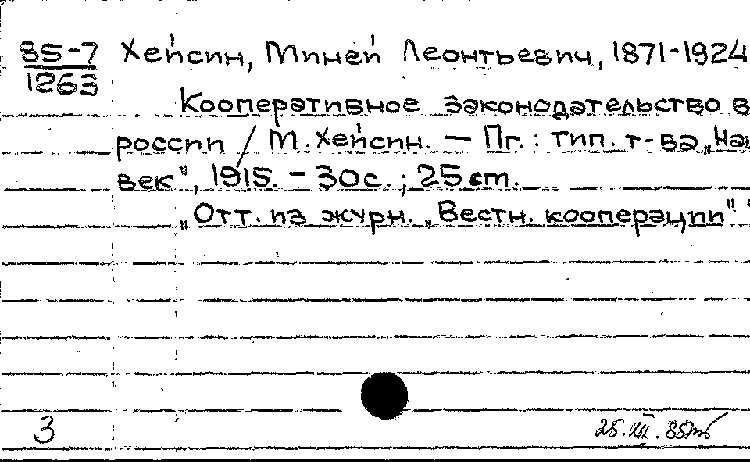 85-7 Хейсин, Миней Леонтьевич, 1871-1924
1263
Кооперативное законодательство в
россии / М. Хейсин. — Пг.: тип. т-ва „Наш
век", 1915. - 30с.; 25 cm.
„Отт. из журн. „Вестн. кооперации"."
3